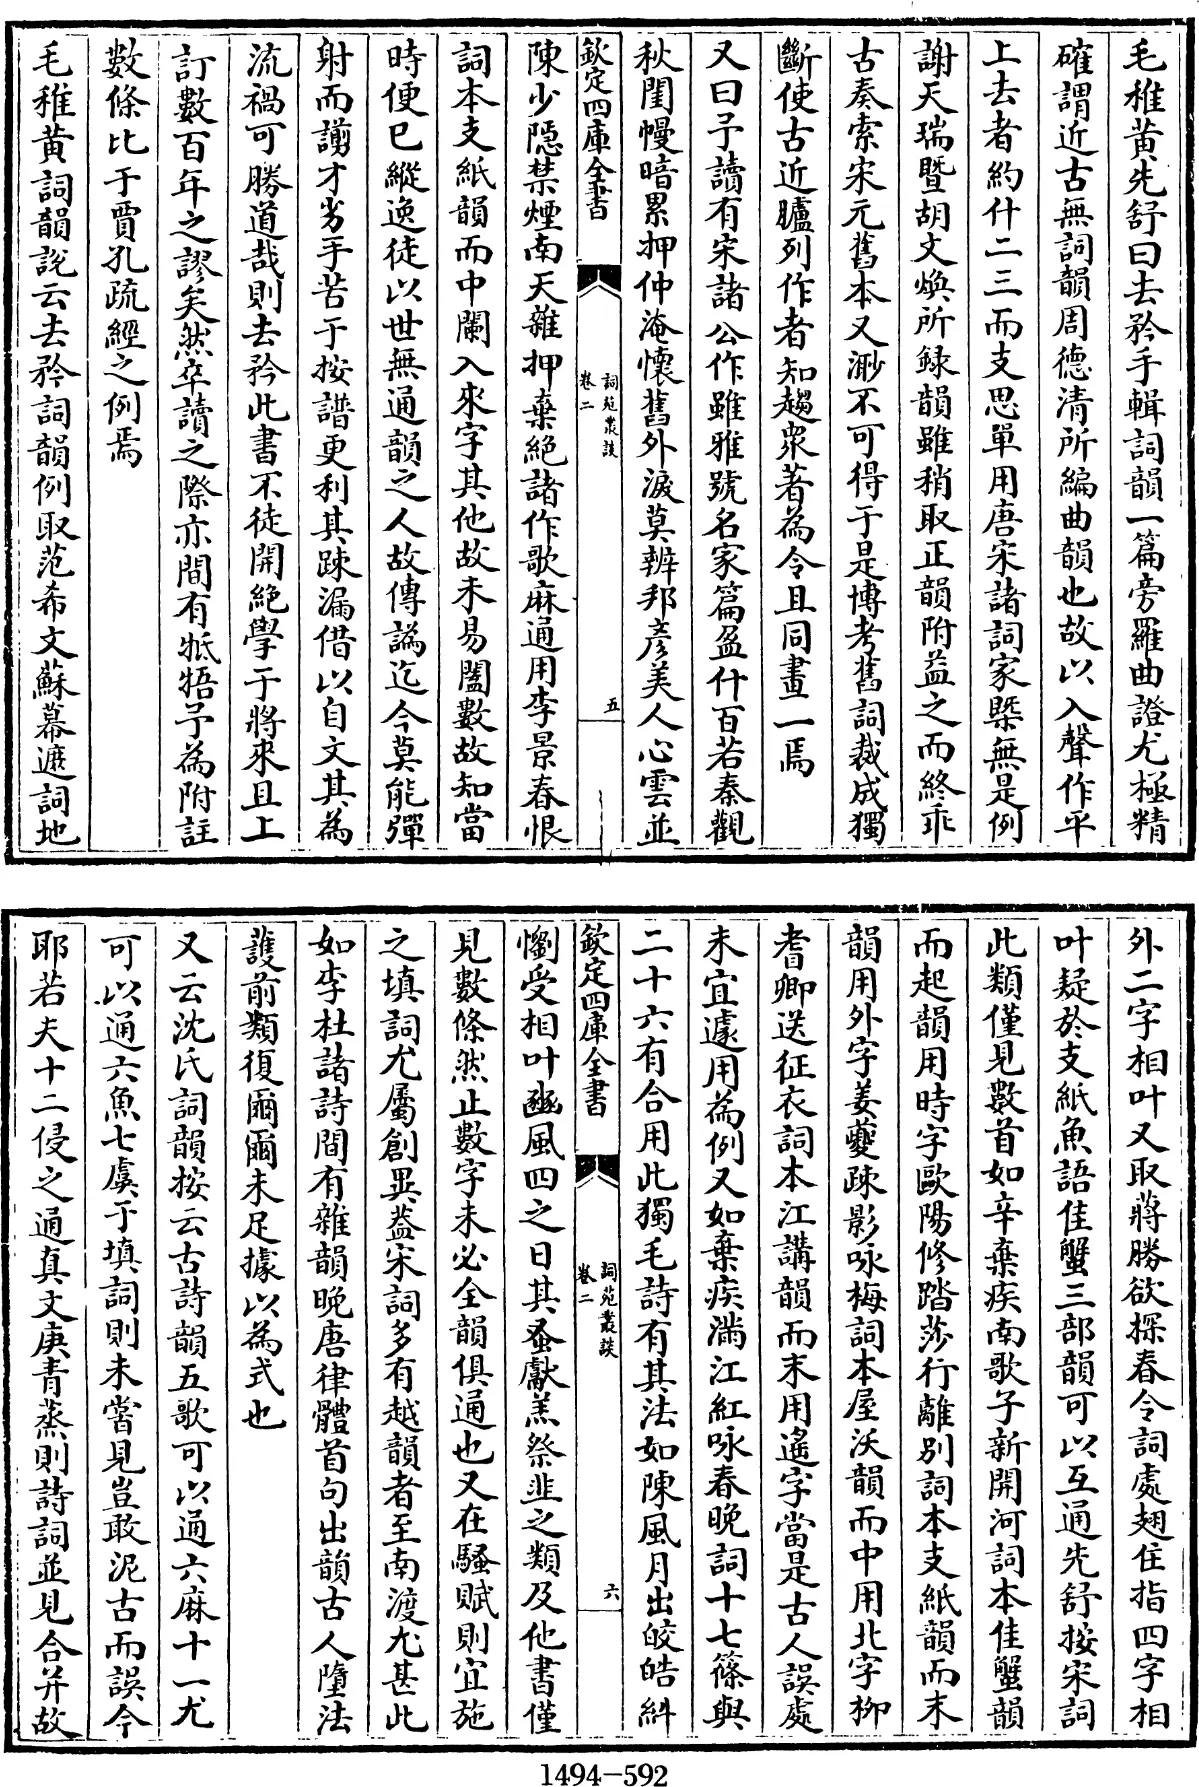 毛稚黄先舒曰去矜手輯詞韻一篇旁羅曲證尤極精
確謂近古無詞韻周德清所編曲韻也故以入聲作平
上去者約什二三而支思單用唐宋諸詞家槩無是例
謝天瑞暨胡文煥所録韻雖稍取正韻附益之而終乖
古奏索宋元舊本又渺不可得于是博考舊詞裁成獨
斷使古近臚列作者知趨衆著為令且同畫一焉
又曰予讀有宋諸公作雖雅號名家篇盈什百若秦觀
秋閨幔暗累押仲淹懷舊外淚莫辨邦彦美人心雲並
欽定四庫全書
詞苑叢談
卷二
五
陳少隠禁煙南天雜押棄絶諸作歌麻通用李景春恨
詞本支紙韻而中闌入來字其他故未易闔數故知當
時便已縱逸徒以世無通韻之人故傳譌迄今莫能彈
射而謭才劣手苦于按譜更利其踈漏借以自文其為
流禍可勝道哉則去矜此書不徒開絶學于將來且上
訂數百年之謬矣然卒讀之際亦間有牴牾予為附註
數條比于賈孔疏經之例焉
毛稚黄詞韻説云去矜詞韻例取范希文蘇幕遮詞地
外二字相叶又取蔣勝欲探春令詞處翅住指四字相
叶疑於支紙魚語佳蟹三部韻可以互通先舒按宋詞
此類僅見數首如辛棄疾南歌子新開河詞本佳蟹韻
而起韻用時字歐陽修踏莎行離别詞本支紙韻而末
韻用外字姜夔踈影咏梅詞本屋沃韻而中用北字柳
耆卿送征衣詞本江講韻而末用遙字當是古人誤處
未宜遽用為例又如棄疾滿江紅咏春晚詞十七篠與
二十六有合用此獨毛詩有其法如陳風月出皎皓糾
欽定四庫全書
詞苑叢談
卷二
六
懰受相叶豳風四之日其蚤獻羔祭韭之類及他書僅
見數條然止數字未必全韻俱通也又在騷賦則宜施
之填詞尤屬創異葢宋詞多有越韻者至南渡尤甚此
如李杜諸詩間有雜韻晚唐律體首句出韻古人墮法
護前類復爾爾未足據以為式也
又云沈氏詞韻按云古詩韻五歌可以通六麻十一尤
可以通六魚七虞于填詞則未嘗見豈敢泥古而誤今
耶若夫十二侵之通真文庚青蒸則詩詞並見合并故
1494-592